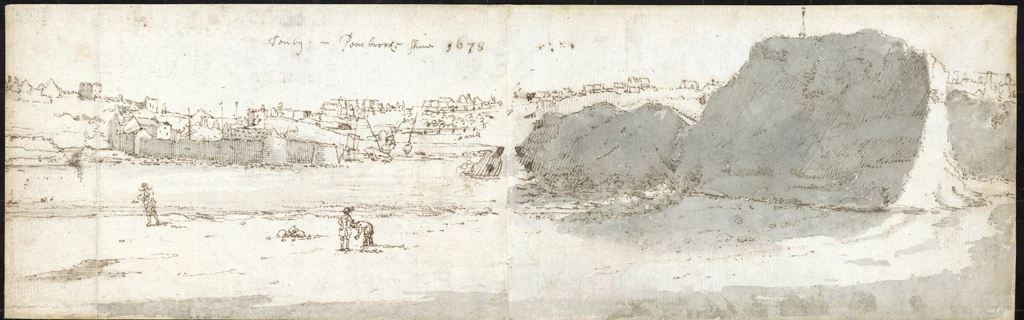 Tenby in Pembroke shire 1678